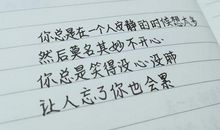 你总是在一个人安静的时候想太多
然后莫名其妙不开心
你总是笑得没心没肺
让人忘了你也会累